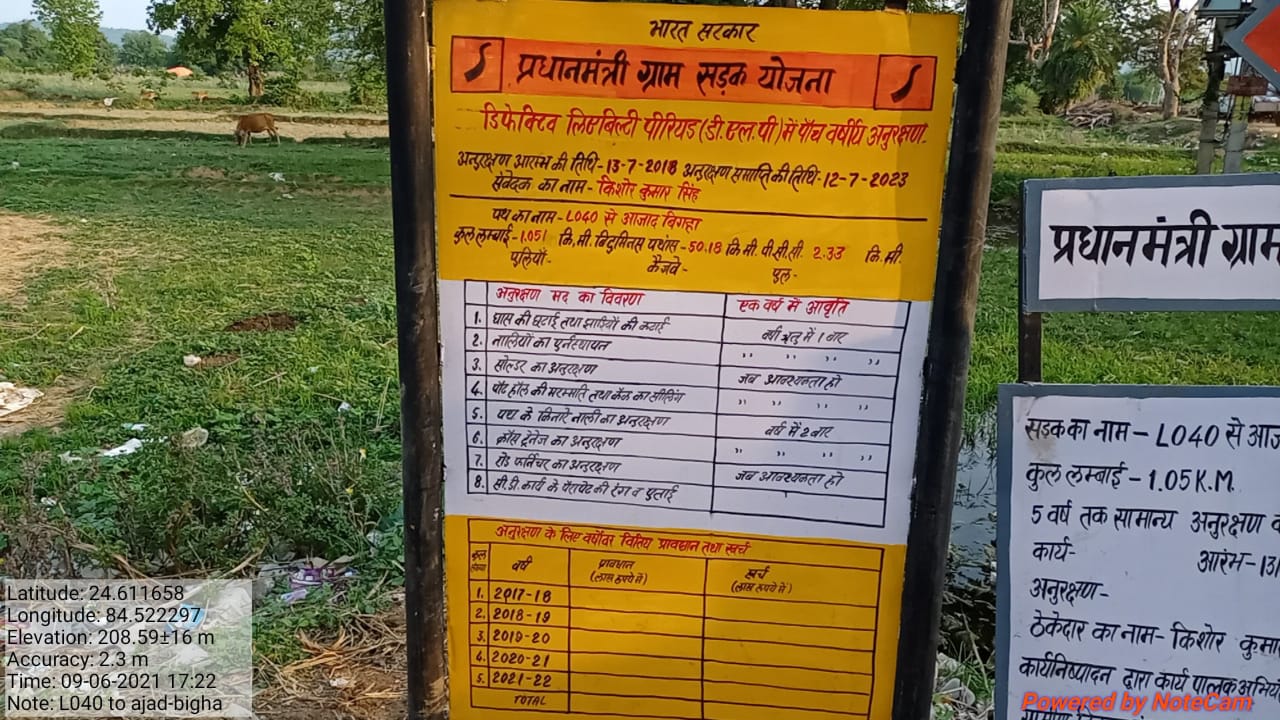 भारत सरकार
प्रधानमंत्री ग्राम सड़क योजना
डिफेक्टिव लिएबिल्टि पीरियड (डी.एल.पी) में पाँच वर्षीय अनुरक्षण.
अनुरक्षण आरम्भ की तिथि-13-7-2018 अनुरक्षण समाप्ति की तिथि-12-7-2023
संवेदक का नाम - किशोर कुमार सिंह
पथ का नाम - L040 से आजाद बिगहा
कुल लम्बाई-1.051 कि.मी. बिटुमिनस पथांस-50.18 कि.मी. पी.सी.सी. 2.33 कि.मी.
पुलिया- कैजवे- पुल-
अनुरक्षण मद का विवरण एक वर्ष में आवृति
1. घास की छटाई तथा झाड़ियों की कटाई वर्षा ऋतु में 1 बार
2. नालियों का पुर्नस्थापन " " " "
3. सोल्डर का अनुरक्षण जब आवश्यकता हो
4. पॉट हॉल की मरम्मति तथा कैक का सीलिंग " " " "
5. पथ के किनारे नाली का अनुरक्षण वर्ष में 2 बार
6. क्रॉस ड्रेनेज का अनुरक्षण " " " "
7. रोड फर्निचर का अनुरक्षण जब आवश्यकता हो
8. सी.डी. कार्य के पैरापेट की रंग व पुताई
अनुरक्षण के लिए वर्षोवर वित्तिय प्रावधान तथा खर्च
वर्ष प्रावधान (लाख रुपये में) खर्च (लाख रुपये में)
1. 2017-18
2. 2018-19
3. 2019-20
4. 2020-21
5. 2021-22
TOTAL
प्रधानमंत्री ग्राम
सड़क का नाम - L040 से
कुल लम्बाई - 1.05 K.M.
5 वर्ष तक सामान्य अनुरक्षण
कार्य- आरंभ-
अनुरक्षण-
ठेकेदार का नाम- किशोर
कार्यनिष्पादन द्वारा कार्य पालक
Latitude: 24.611658
Longitude: 84.522297
Elevation: 208.59±16 m
Accuracy: 2.3 m
Time: 09-06-2021 17:22
Note: L040 to ajad-bigha
Powered by NoteCam